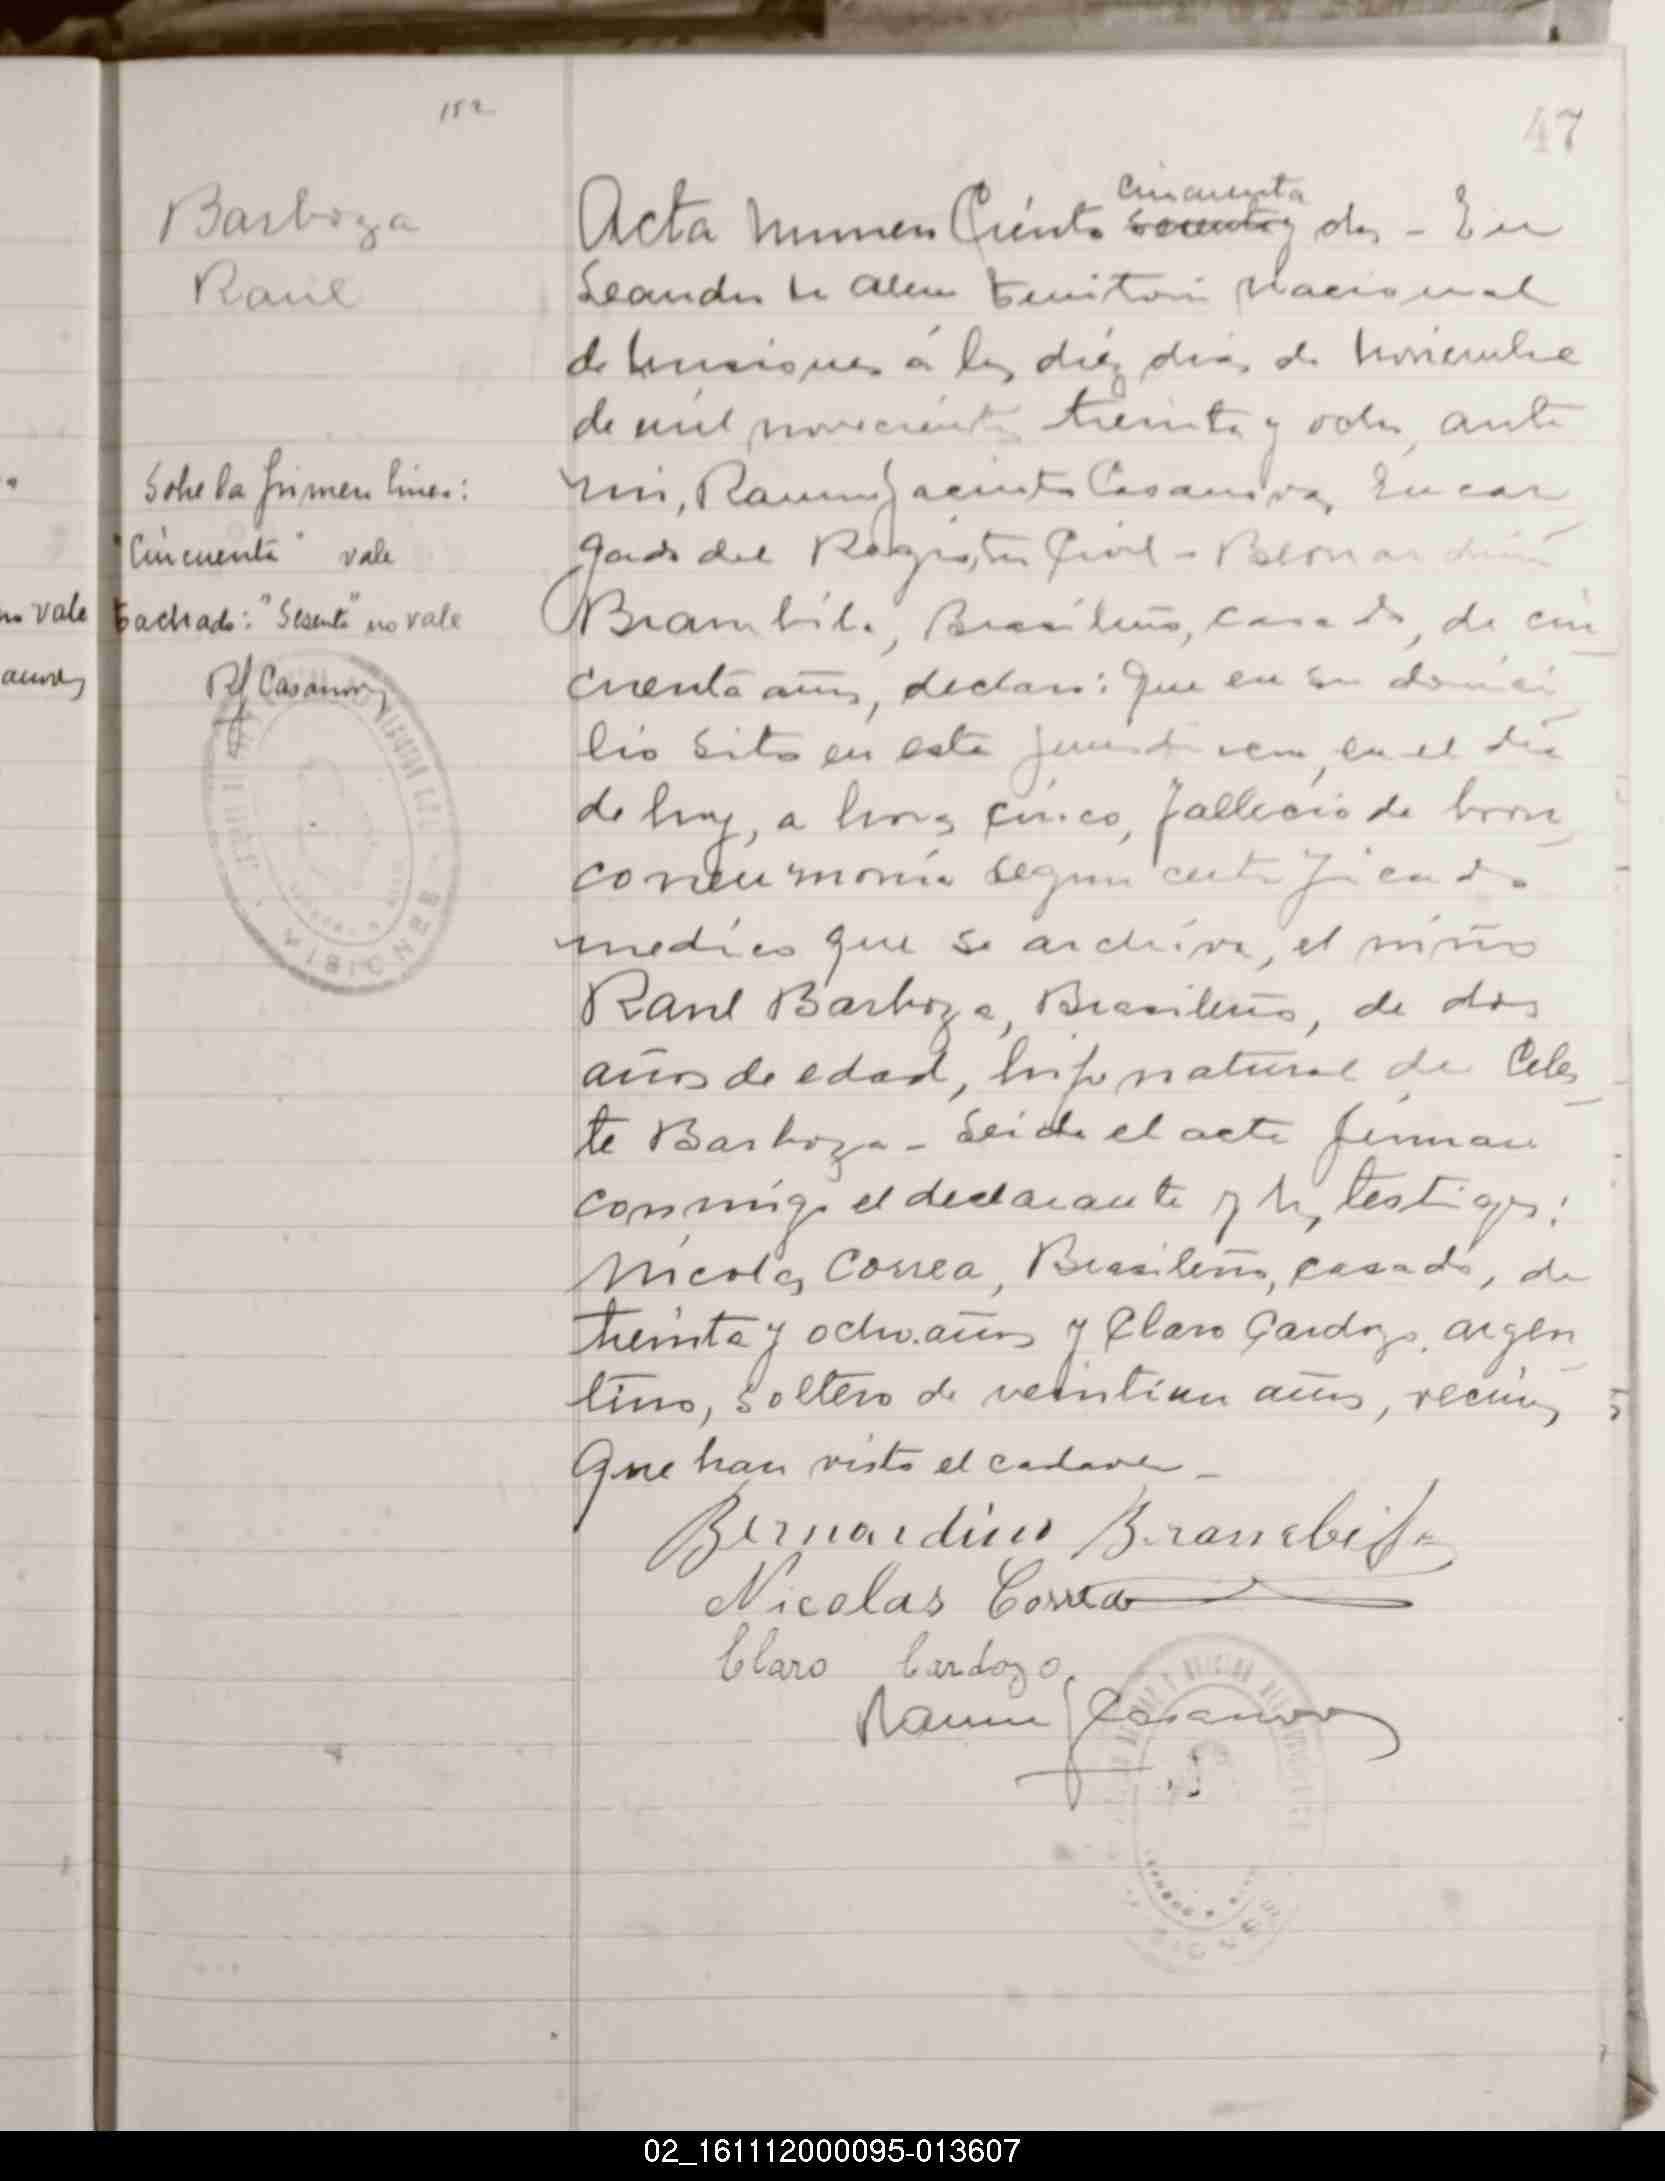 152
47
Barboza
Raul
Acta numero Ciento sesenta y dos - En
cincuenta
Leandro N Alem territorio Nacional
de Misiones á los diéz dias de Noviembre
de mil novecientos treinta y ocho, ante
mi, Ramon Jacinto Casanova, Encar
gado del Registro Civil - Bernardino
Brambila, Brasileño, casado, de cin
cuenta años, declaro: Que en su domici
lio sito en esta jurisdiccion, en el dia
de hoy, a horas cinco, fallecio de bron
coneumonia segun certificado
medico que se archiva, el niño
Raul Barboza, Brasileño, de dos
años de edad, hijo natural de Celes
te Barboza - Leida el acta firman
conmigo el declarante y los testigos:
Nicolas Correa, Brasileño, casado, de
treinta y ocho años y Claro Cardozo, argen
tino, soltero de veintiun años, vecinos
que han visto el cadaver -
Sobre la primera linea:
"Cincuenta" vale
tachado: "Sesenta" no vale
RJ Casanova
no vale
MISIONES
Bernardino Brambila
Nicolas Correa
Claro Cardozo
Ramon J Casanova
02_161112000095-013607